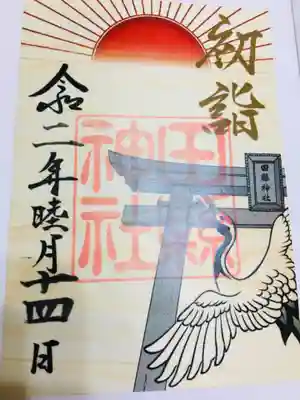 初詣
田縣神社
田縣
神社
令和二年睦月十四日